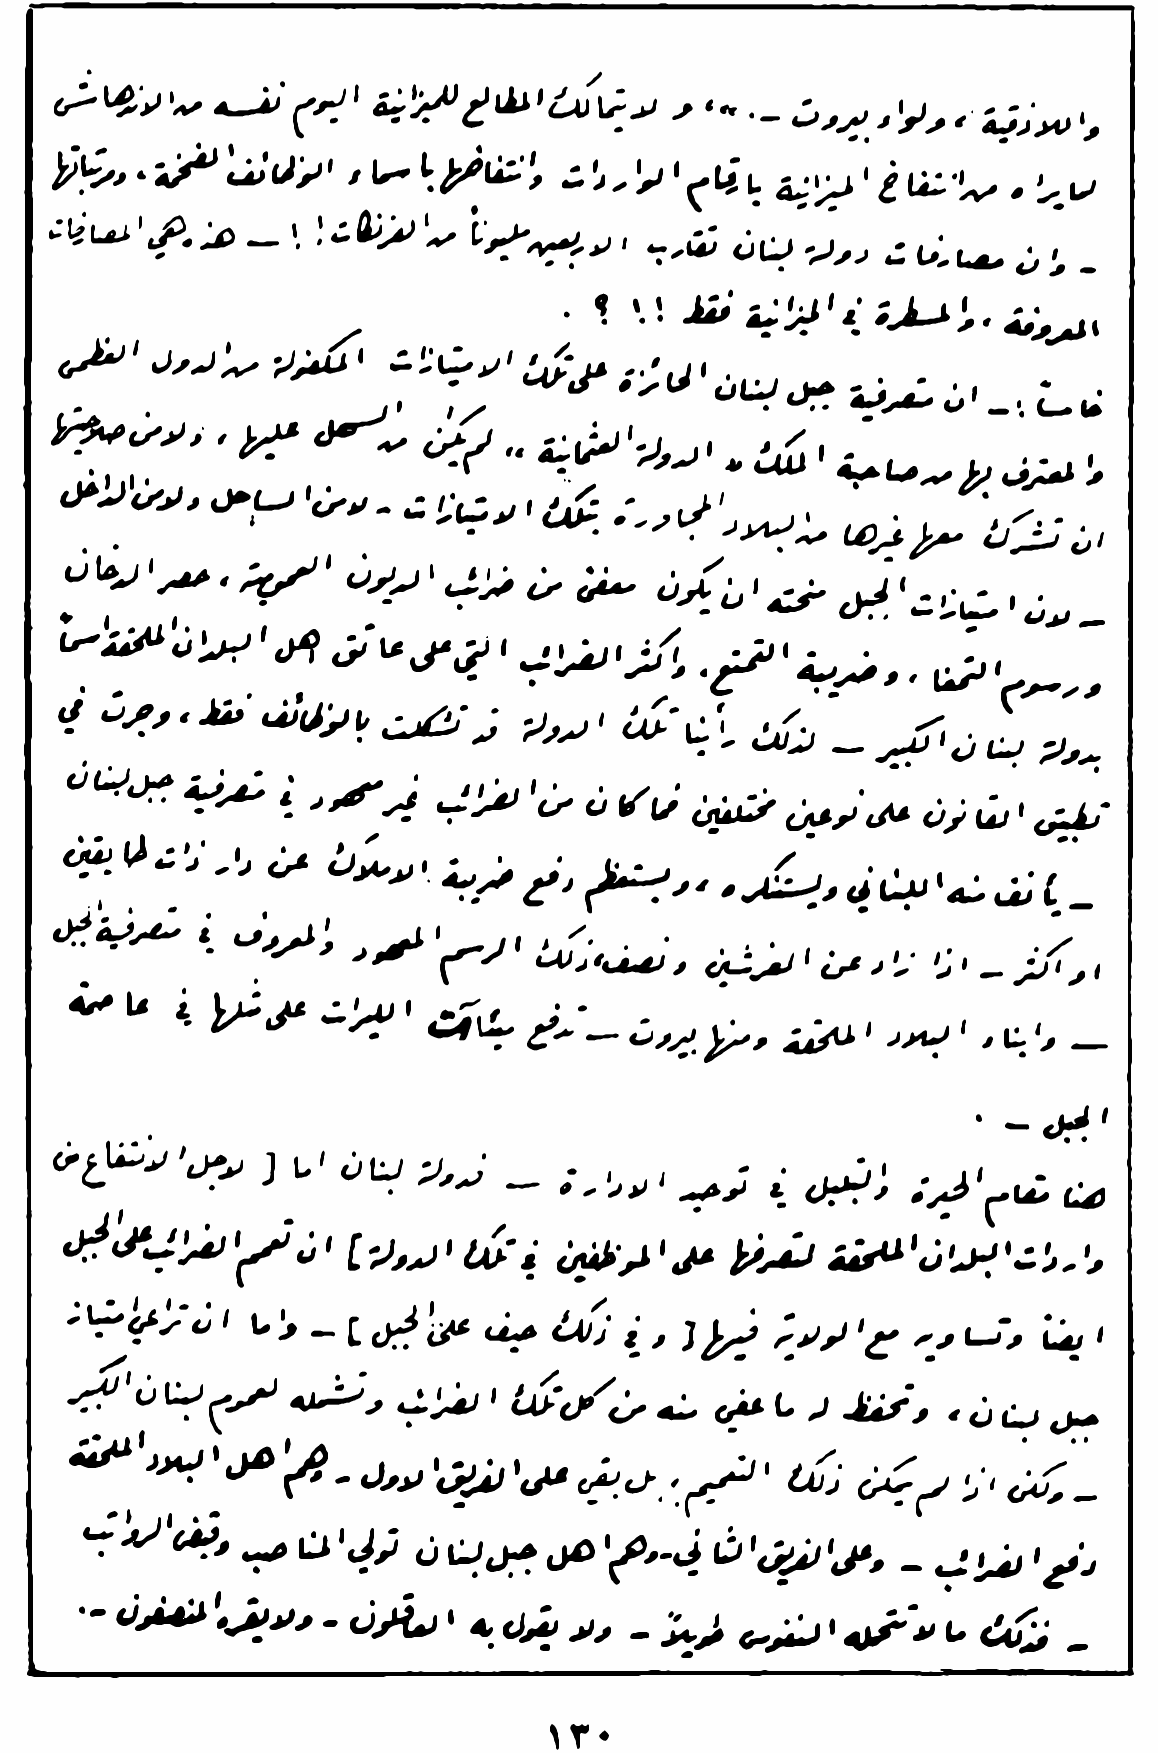 واللاذقية، ولواء بيروت ـ.»، و لا يتمالك المطالع للميزانية اليوم نفسه من الاندهاش
لما يراه من انتفاخ الميزانية بارقام الواردات وانتفاخها باسماء الوظائف الضخمة، ومرتباتها
ـ وان مصارفات دولة لبنان تقارب الاربعين مليوناً من الفرنكات! ! ـ هذه هي المصارفات
المعروفة، والمسطرة في الميزانية فقط ! ! ؟ .
خامساً :ـ ان متصرفية جبل لبنان الحائزة على تلك الامتيازات المكفولة من الدول العظمى
والمعترف بها من صاحبة الملك « الدولة العثمانية »، لم يكن من السهل عليها، ولا من صلاحيتها
ان تشرك معها غيرها من البلاد المجاورة بتلك الامتيازات ـ لا من الساحل ولا من الداخل
ـ لان امتيازات الجبل منحته ان يكون معفىً من ضرائب الديون العمومية، حصر الدخان
ورسوم التمغا، وضريبة التمتع، واكثر الضرائب التي على عاتق اهل البلدان الملحقة اسماً
بدولة لبنان الكبير ـ لذلك رأينا تلك الدولة قد تشكلت بالوظائف فقط، وجرت في
تطبيق القانون على نوعين مختلفين فما كان من الضرائب غير معهود في متصرفية جبل لبنان
ـ يأنف منه اللبناني ويستنكره، ويستعظم دفع ضريبة الاملاك عن دار ذات طابقين
او اكثر ـ اذا زاد عن القرشين ونصف، ذلك الرسم المعهود والمعروف في متصرفية الجبل
ـ وابناء البلاد الملحقة ومنها بيروت ـ تدفع مئات الليرات على مثلها في عاصمة
الجبل ـ .
هنا مقام الحيرة والتبلبل في توحيد الادارة ـ فدولة لبنان اما [ لاجل الانتفاع من
واردات البلدان الملحقة لتصرفها على الموظفين في تلك الدولة ] ان تعمم الضرائب على الجبل
ايضاً وتساويه مع الولاية فيها [ وفي ذلك حيف على الجبل ] ـ واما ان تراعي امتياز
جبل لبنان، وتحفظ له ما عفي منه من كل تلك الضرائب وتشمله لعموم لبنان الكبير
ـ ولكن اذا لم يمكن ذلك التعميم ; بل بقي على الفريق الاول ـ وهم اهل البلاد الملحقة
دفع الضرائب ـ وعلى الفريق الثاني ـ وهم اهل جبل لبنان تولي المناصب وقبض الرواتب
ـ فذلك ما لا تتحمله النفوس طويلاً ـ ولا يقول به العاقلون ـ ولا يقره المنصفون ـ.
١٣٠